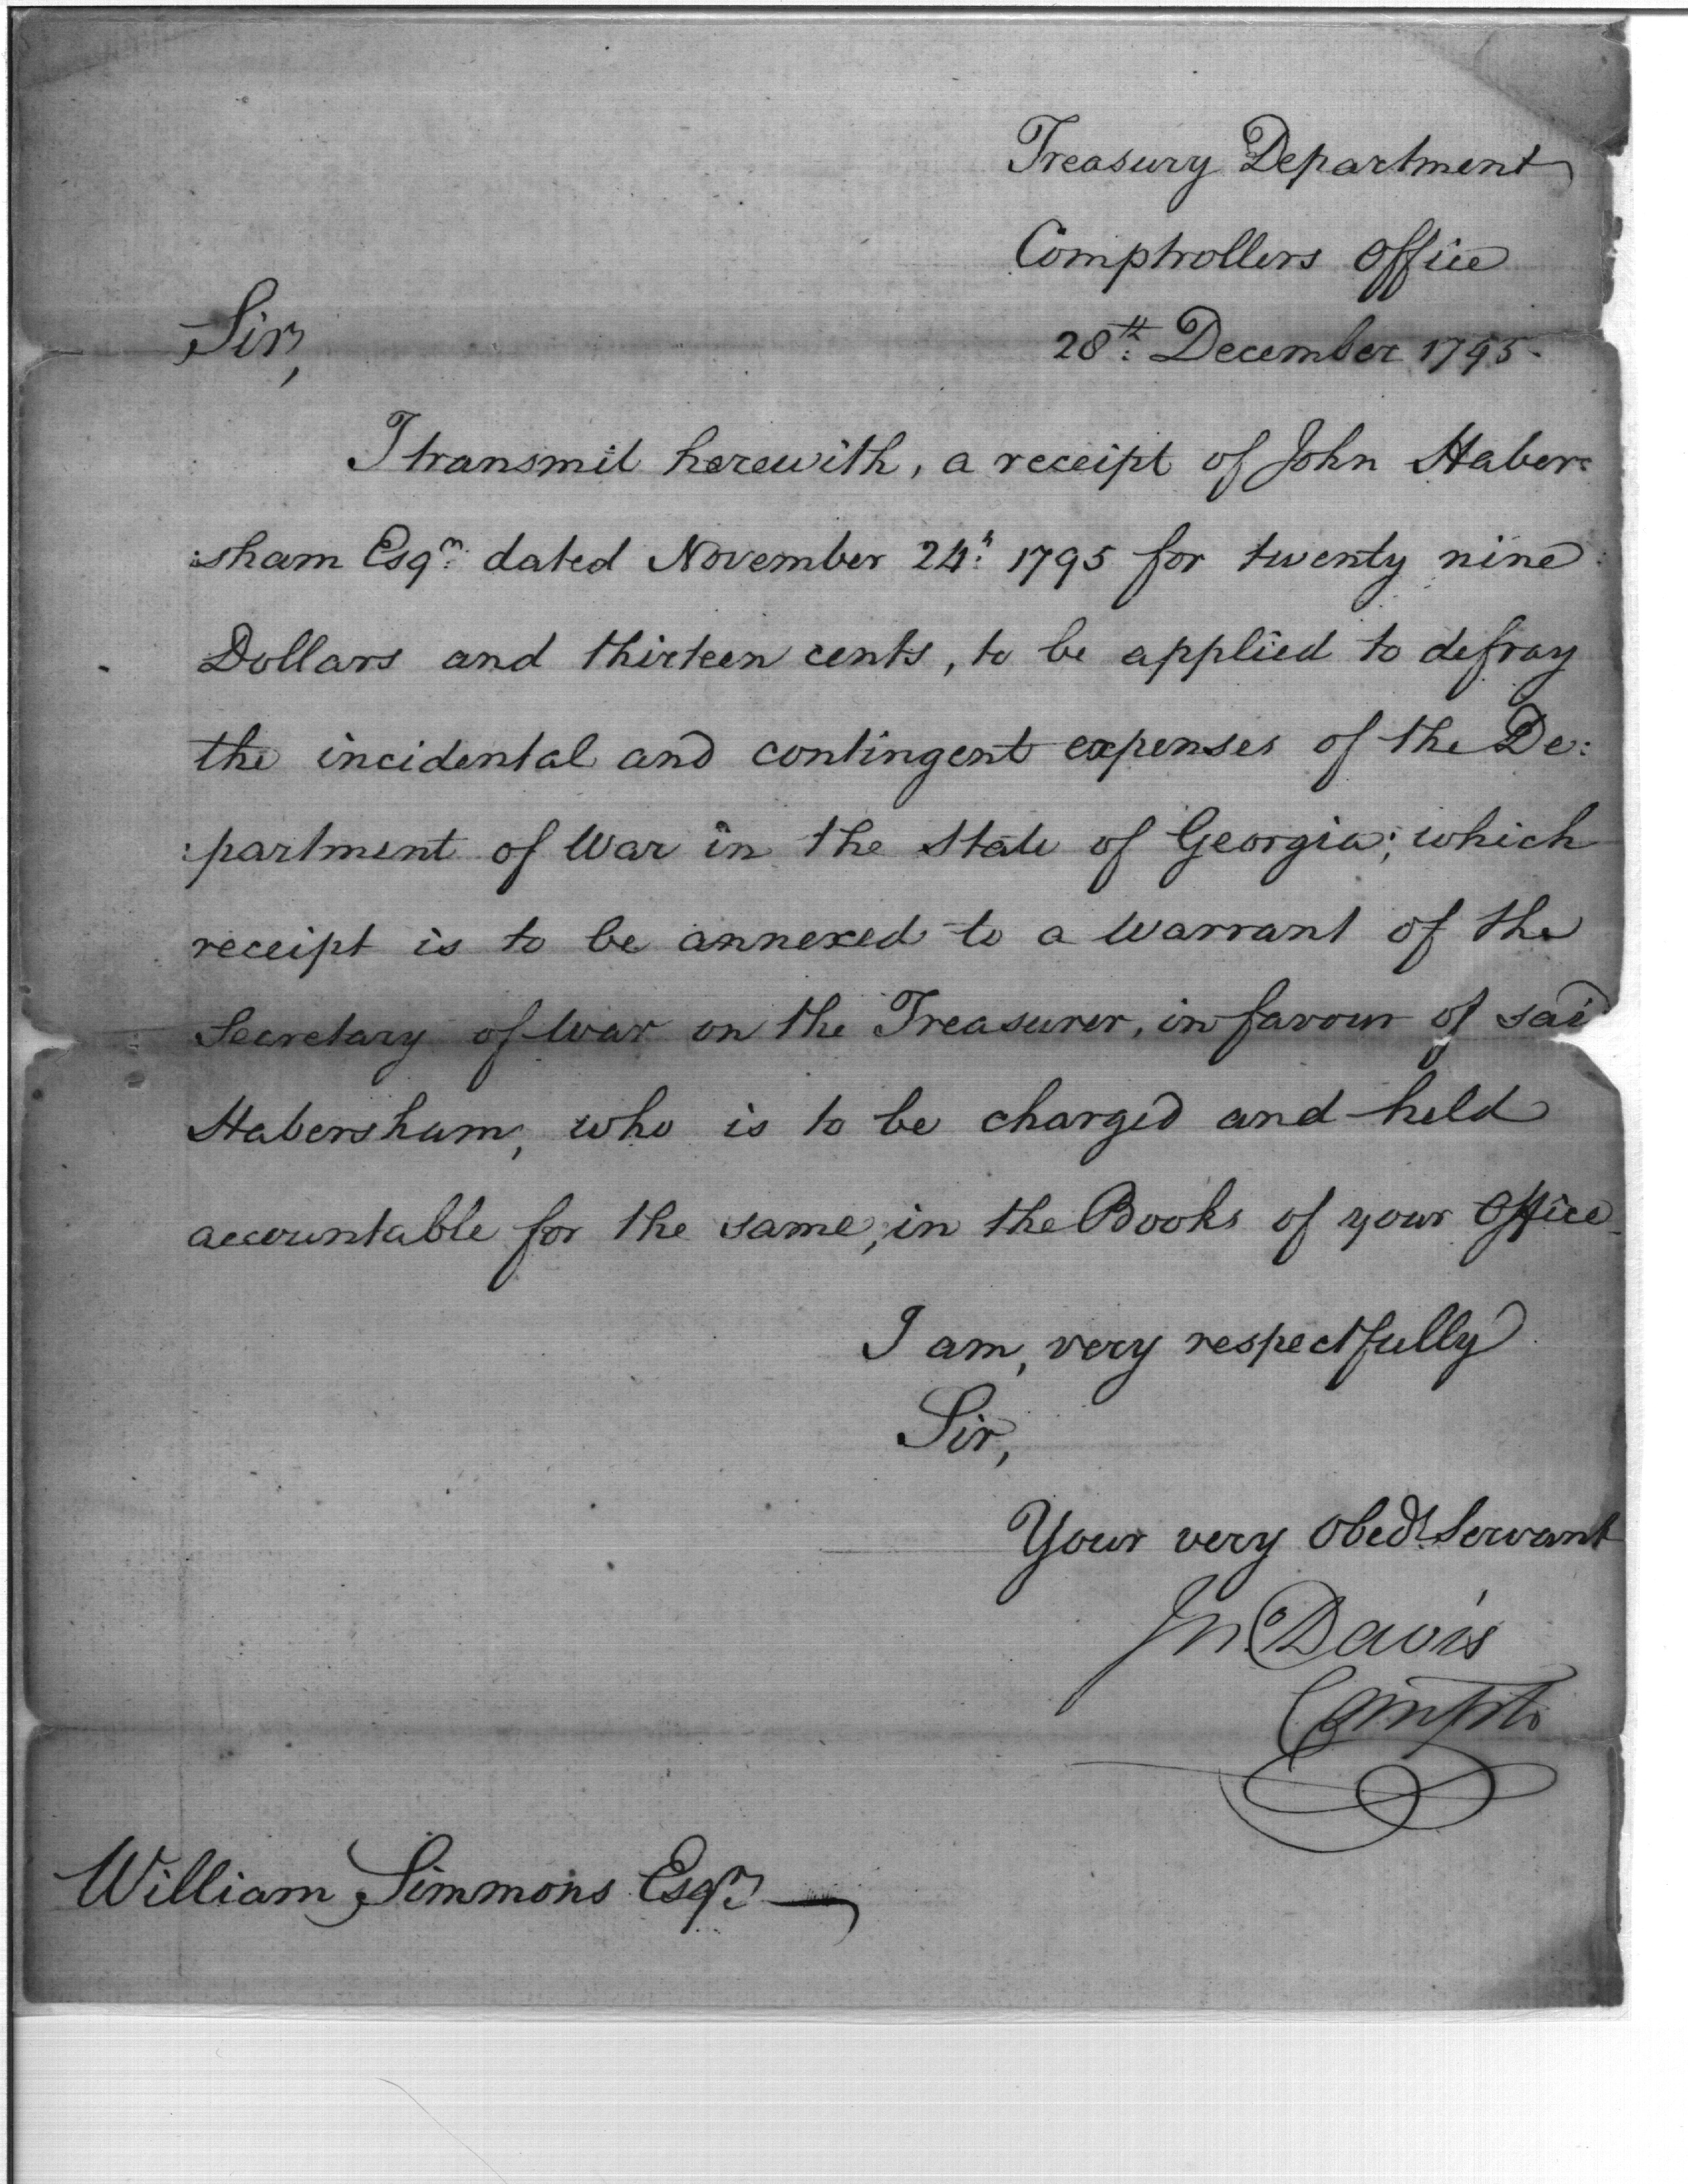 Treasury Department
Comptrollers Office
Sir,
28th: December 1795.
I transmit herewith, a receipt of John Haber:
:sham Esqr. dated November 24th: 1795 for twenty nine
Dollars and thirteen cents, to be applied to defray
the incidental and contingent expenses of the De:
:partment of War in the State of Georgia; which
receipt is to be annexed to a Warrant of the
Secretary of War on the Treasurer, in favour of said
Habersham, who is to be charged and held
accountable for the same, in the Books of your Office
I am, very respectfully
Sir,
Your very Obedt. Servant
Jn. Davis
Comptr
William Simmons Esqr.